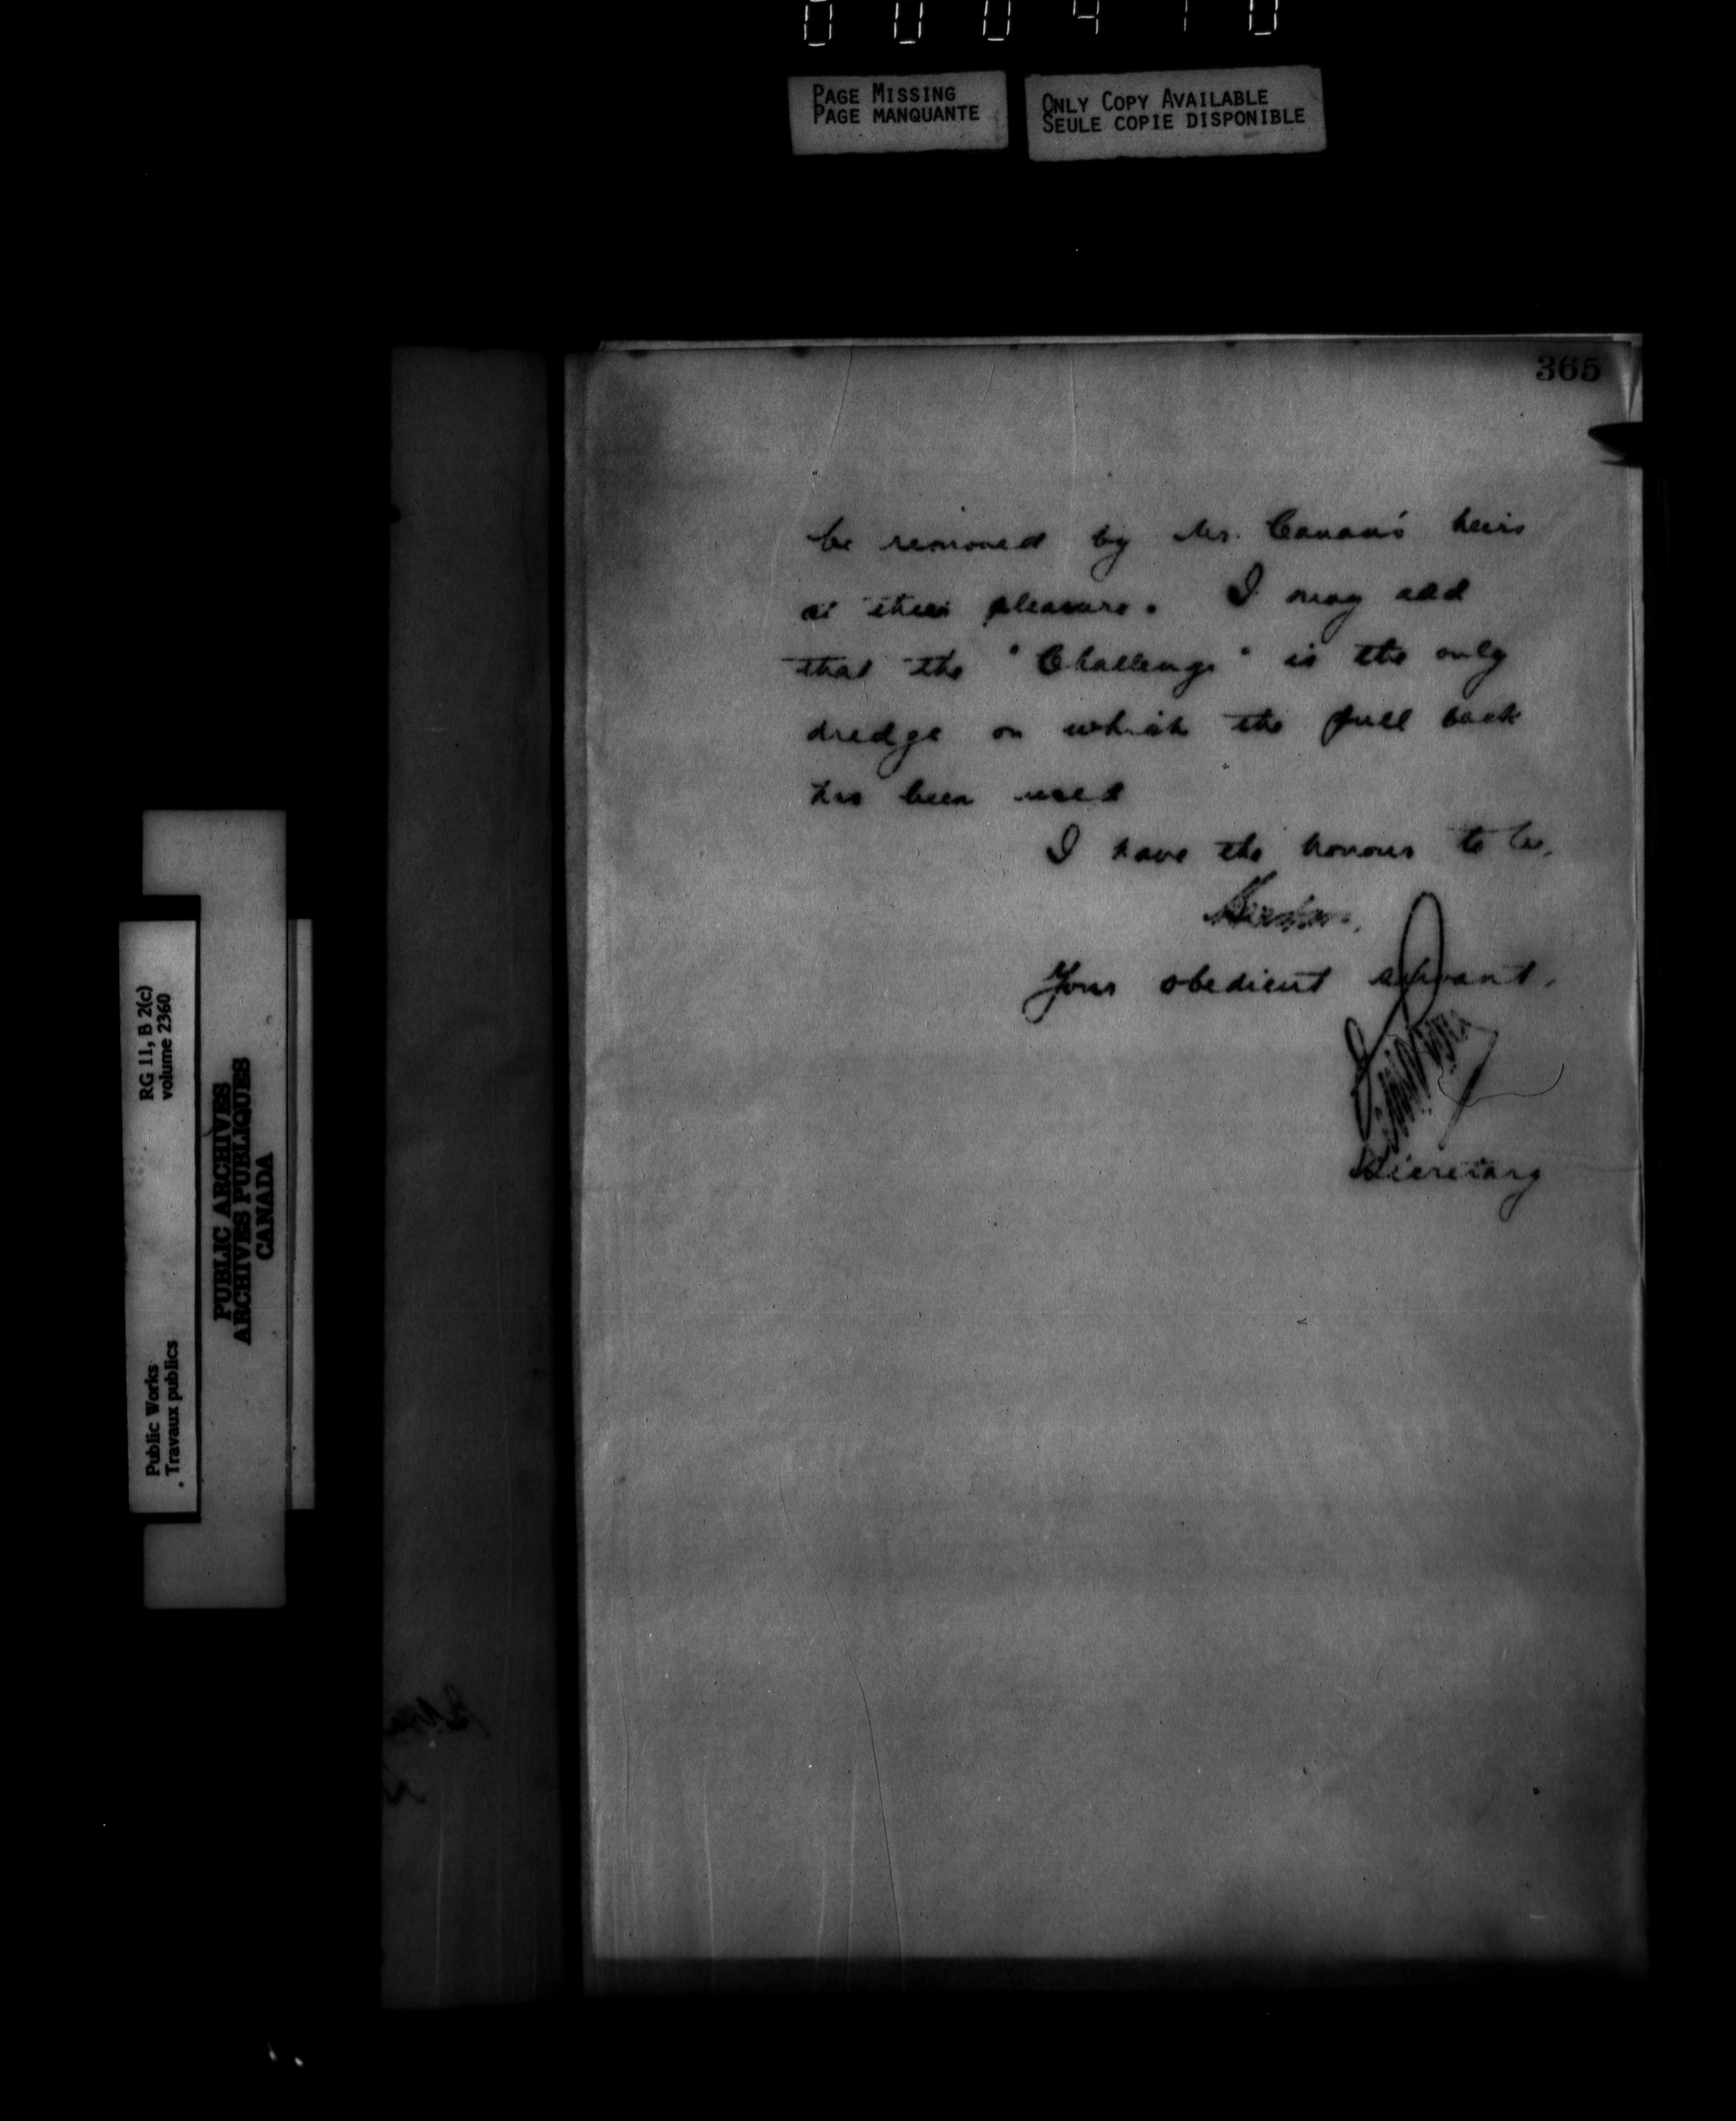 000410
PAGE MISSING
PAGE MANQUANTE
ONLY COPY AVAILABLE
SEULE COPIE DISPONIBLE
365
be removed by Mr. Canan's heirs
at their pleasure. I may add
that the "Challenge" is the only
dredge on which the pull back
has been used
I have the honour to be,
Your obedient servant,
Secretary
RG 11, B 2(c)
volume 2360
Public Works
Travaux publics
PUBLIC ARCHIVES
ARCHIVES PUBLIQUES
CANADA